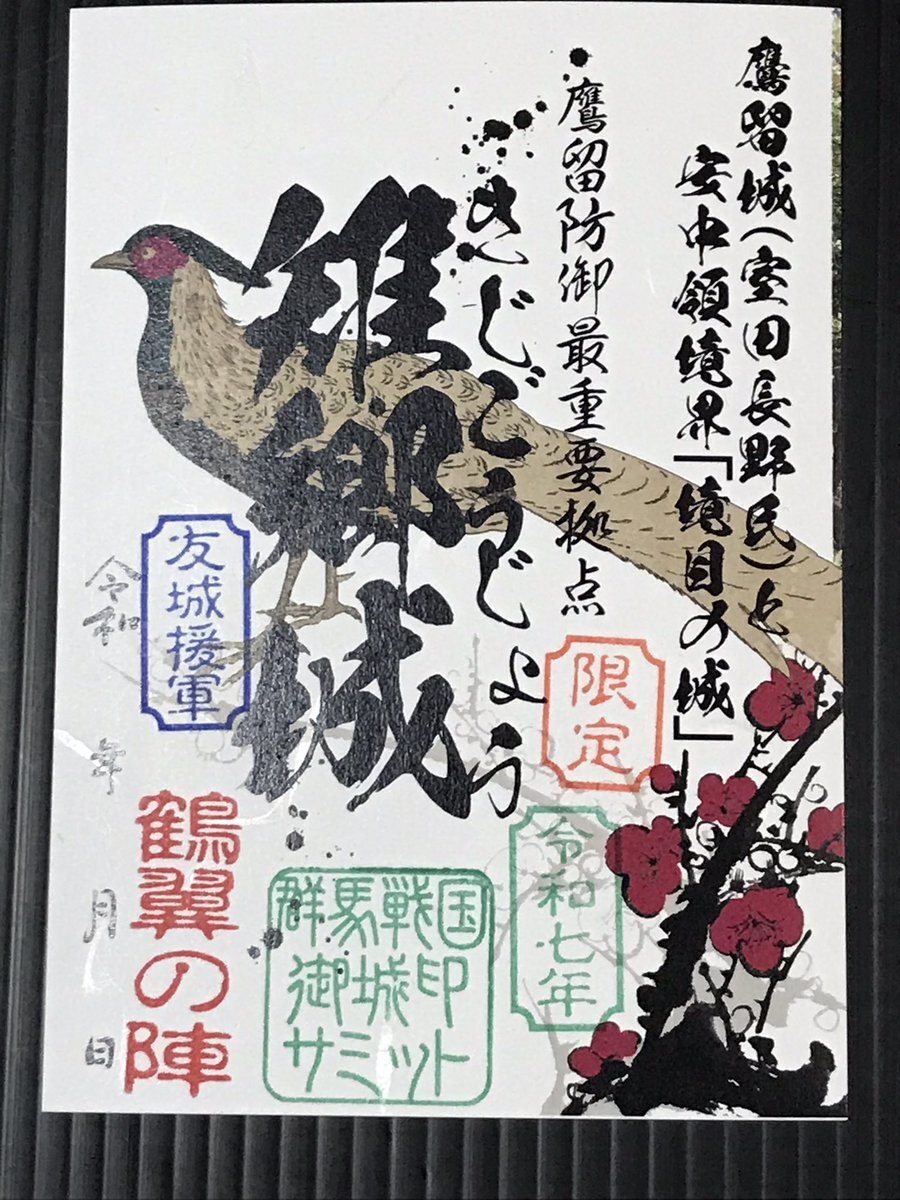 鷹留城(室田長野氏)と
安中領境界「境目の城」
鷹留防御最重要拠点
きじごうじょう
雉郷城
限定
令和七年
友城援軍
国印ット
戦城ミ
馬御サ
群
鶴翼の陣
令和 年 月 日